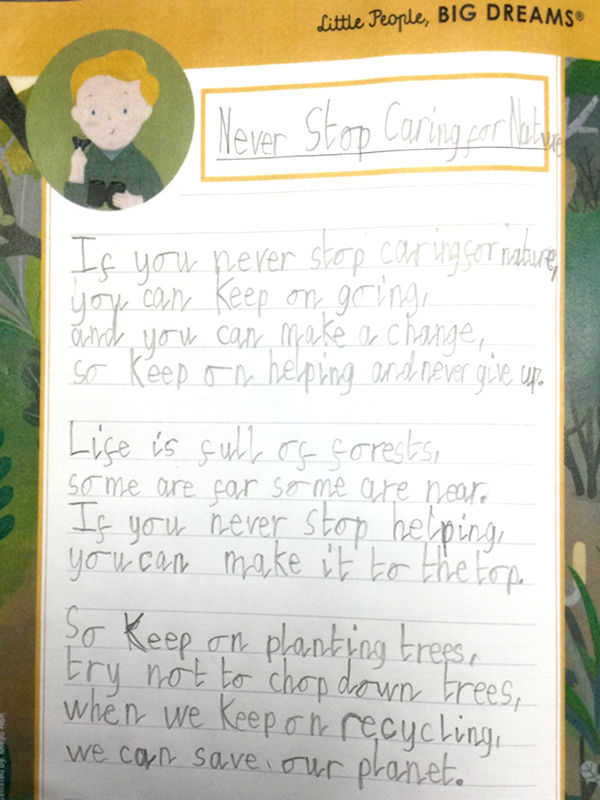 Little People, BIG DREAMS®
Never Stop Caring for Nature
If you never stop caring for nature,
you can keep on going,
and you can make a change,
so keep on helping and never give up.
Life is full of forests,
some are far some are near.
If you never stop helping,
you can make it to the top.
So keep on planting trees,
try not to chop down trees,
when we keep on recycling,
we can save our planet.